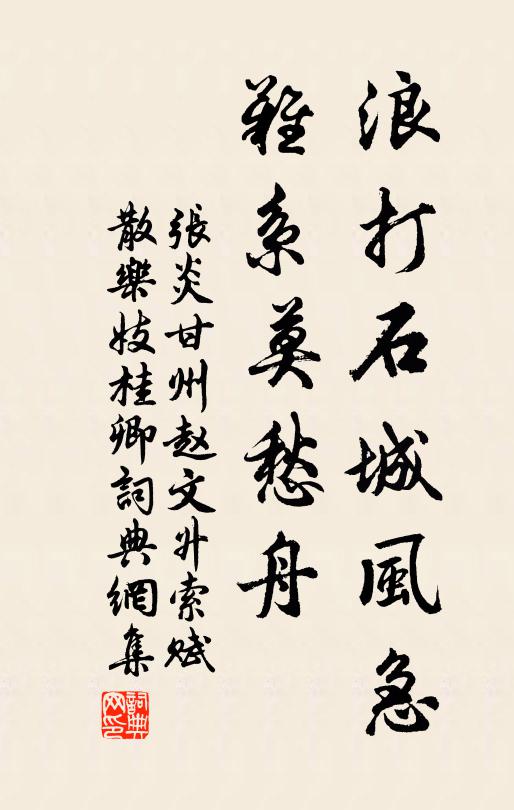 浪打石城風急
難系莫愁舟
張炎甘州赵文升索赋
散樂妓桂卿詞典網集
詞典
网印